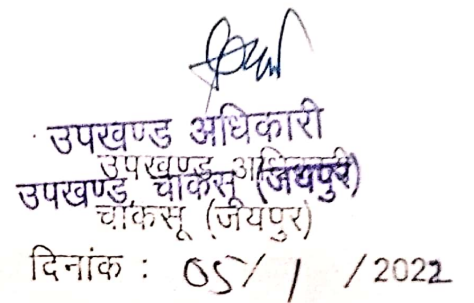 उपखण्ड अधिकारी
उपखण्ड अधिकारी
उपखण्ड, चाकसू (जयपुर)
चाकसू (जयपुर)
दिनांक : 05/1/2022